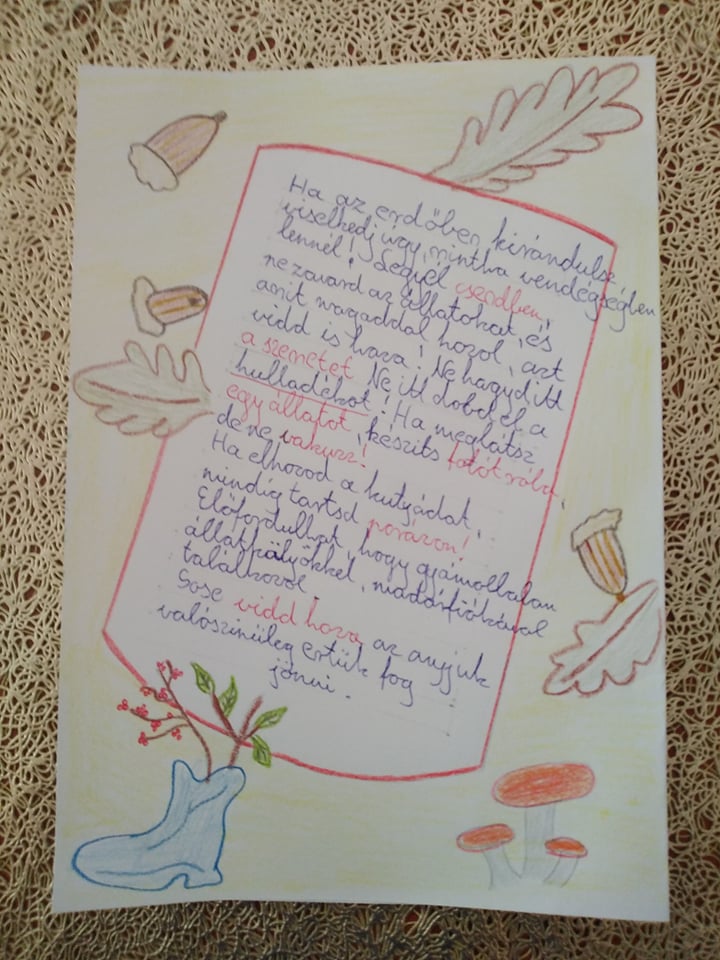 Ha az erdőben kirándulsz,
viselkedj úgy, mintha vendégségben
lennél! Legyél csendben,
ne zavard az állatokat, és
amit magaddal hozol, azt
vidd is haza! Ne hagyd itt
a szemetet. Ne itt dobd el a
hulladékot! Ha meglátsz
egy állatot, készíts fotót róla,
de ne vakuzz!
Ha elhozod a kutyádat,
mindig tartsd pórázon!
Előfordulhat, hogy gyámoltalan
állatkölyökkel, madárfiókával
találkozol.
Sose vidd haza, az anyjuk
valószínűleg értük fog
jönni.